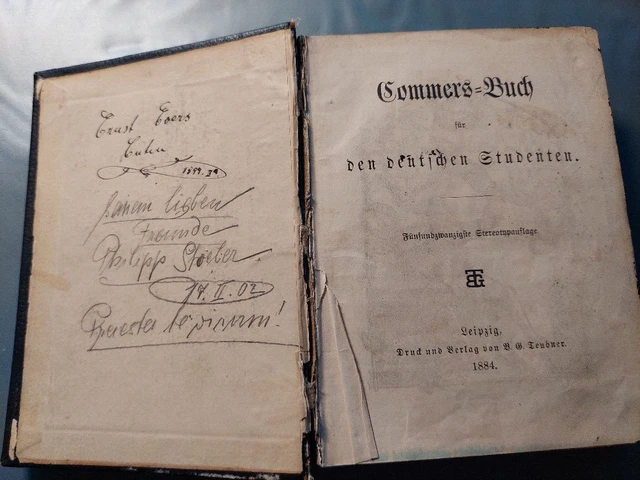 Ernst Evers
Eutin
seinem lieben
Freunde
Philipp Stoeber
14. II. 02
te vivum!
Commers=Buch
für
den deutschen Studenten.
Fünfundzwanzigste Stereotypauflage
BGT
Leipzig,
Druck und Verlag von B. G. Teubner.
1884.